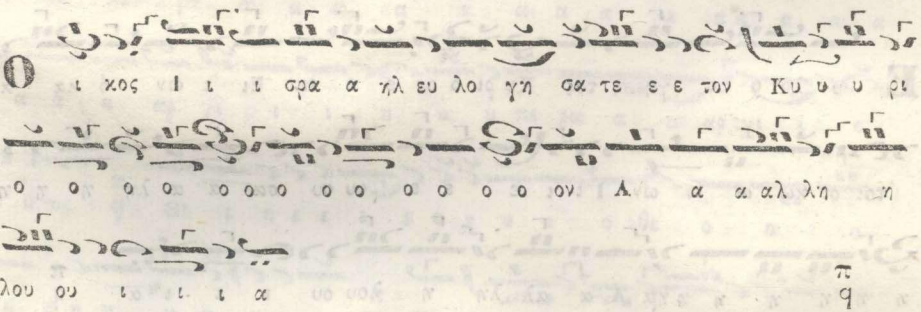 Ο ι κος Ι ι ι σρα α ηλ ευ λο γη σα τε ε ε τον Κυ υ υ ρι
ο ο ο ο ο ο ο ο ο ο ο ο ο ο ον Α α α αλ λη η
λου ου ι ι ι α π q